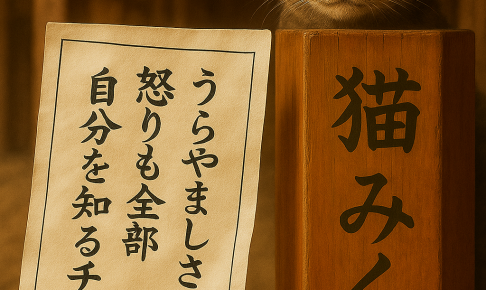 うらやましさ
怒りも全部
自分を知るチ
猫みく